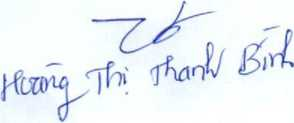 Hoàng Thị Thanh Bình